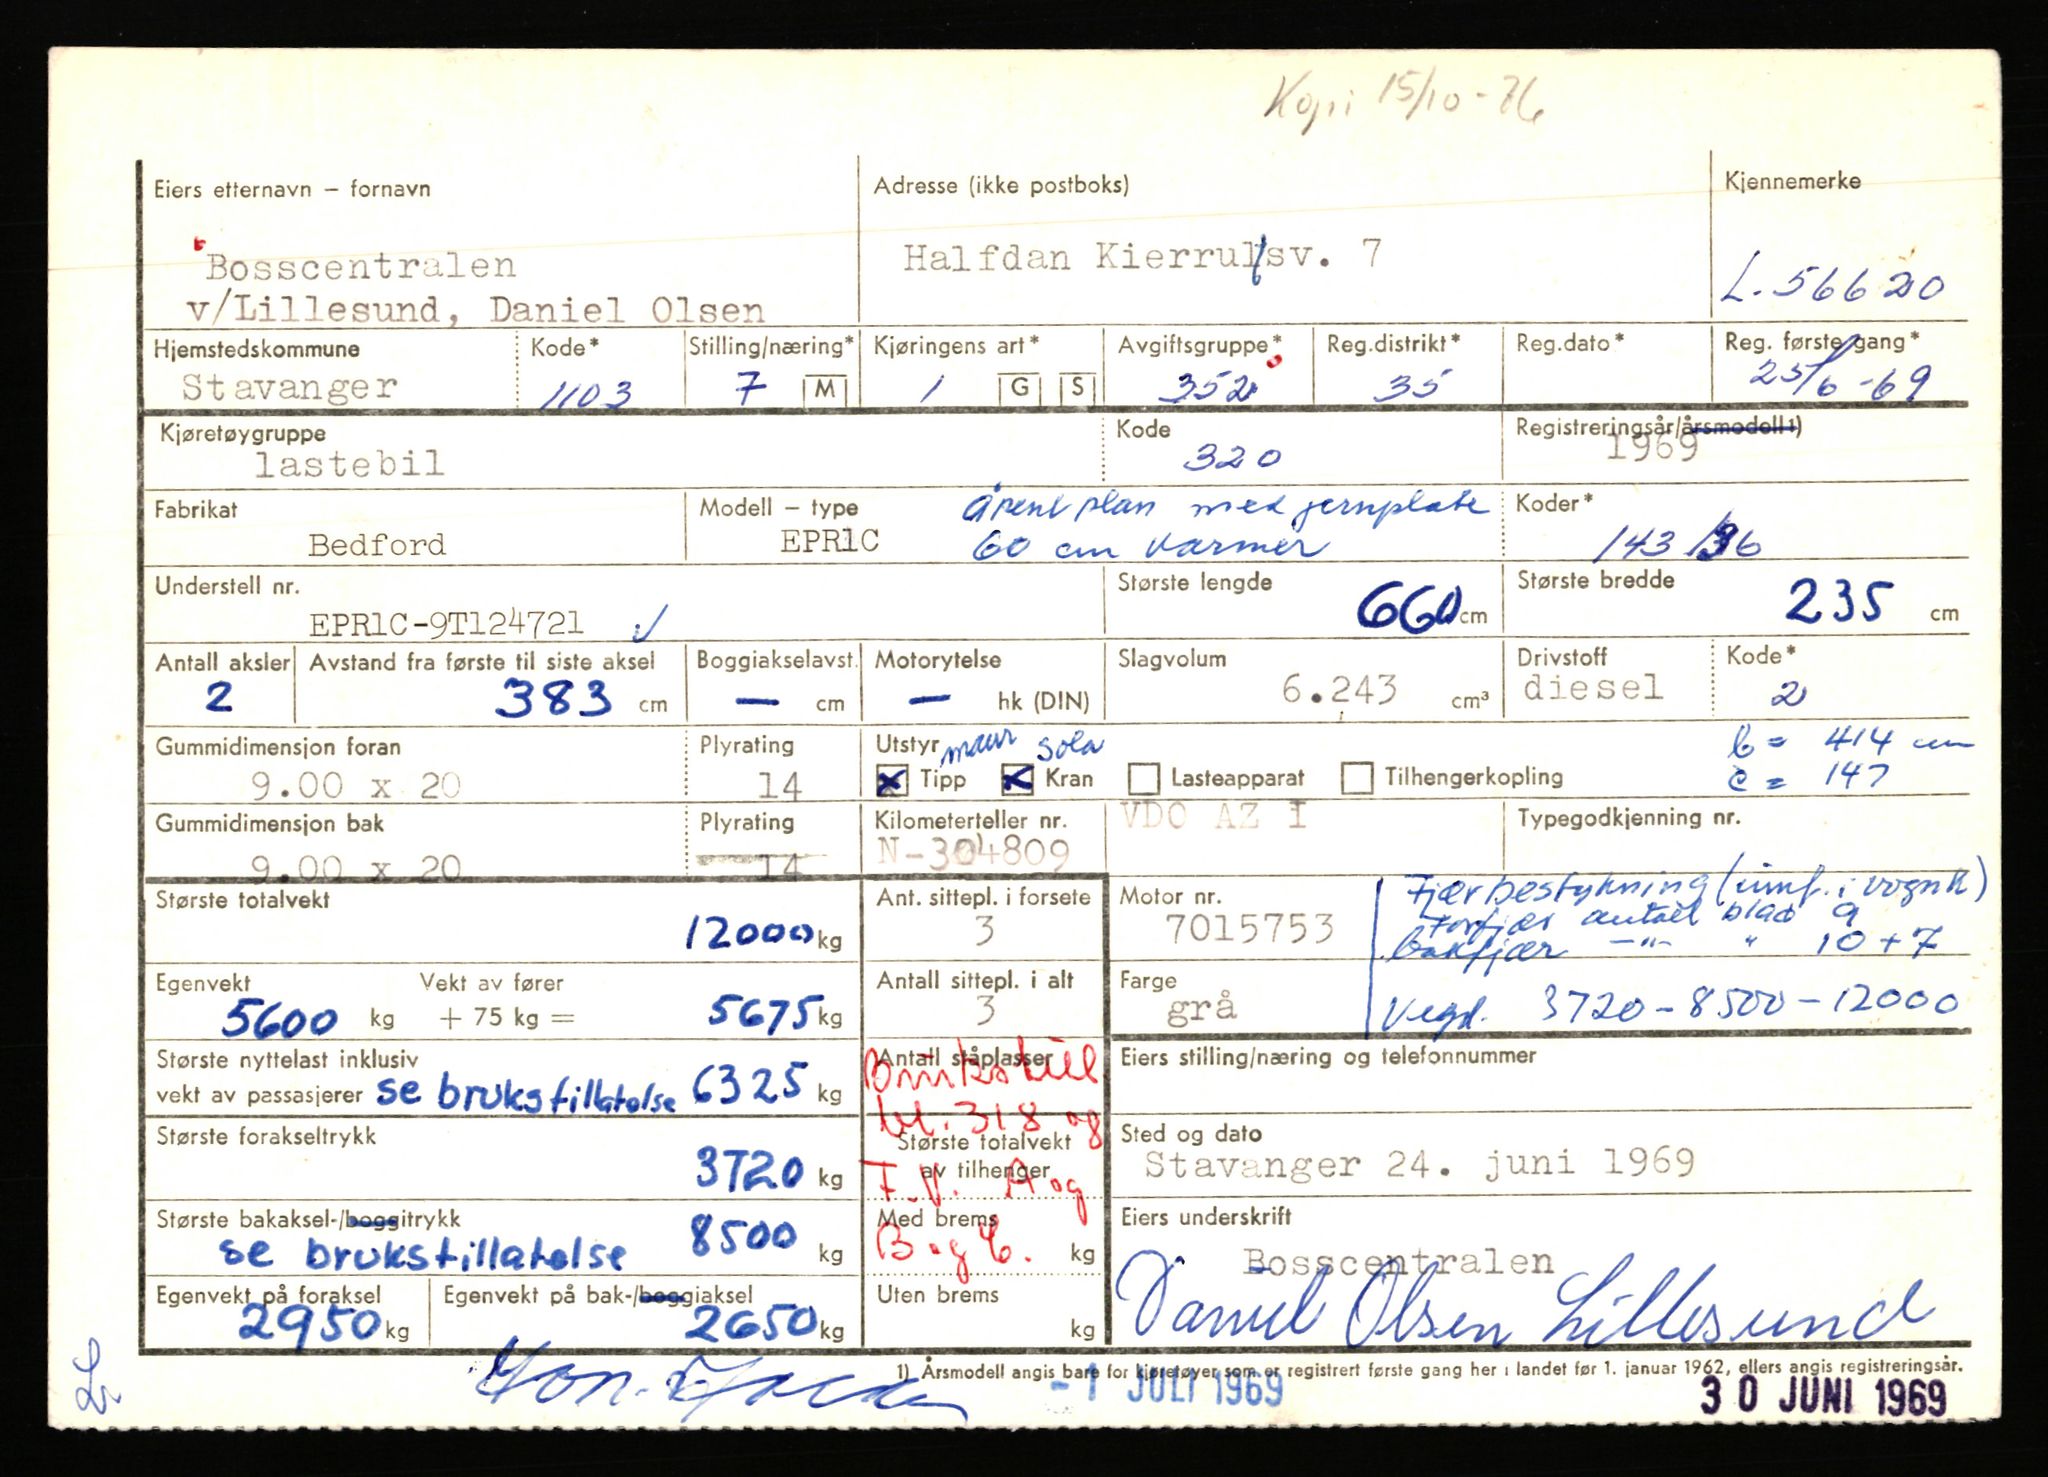 Kopi 15/10-76
Eiers etternavn – fornavn
Adresse (ikke postboks)
Kjennemerke
Bosscentralen
v/Lillesund, Daniel Olsen
Halfdan Kierrulfsv. 7
L-56620
Hjemstedskommune
Kode*
Stilling/næring*
Kjøringens art*
Avgiftsgruppe*
Reg.distrikt*
Reg.dato*
Reg. første gang*
Stavanger
1103
7 M
1 G S
352
35
25/6-69
Kjøretøygruppe
Kode
Registreringsår/årsmodell 1)
lastebil
320
1969
Fabrikat
Modell – type
Koder*
Bedford
EPR1C
Åpent plan med jernplate
60 cm karmer
143
Understell nr.
Største lengde
Største bredde
EPR1C-9T124721
660 cm
235 cm
Antall aksler
Avstand fra første til siste aksel
Boggiakselavst.
Motorytelse
Slagvolum
Drivstoff
Kode*
2
383 cm
— cm
— hk (DIN)
6.243 cm³
diesel
2
Gummidimensjon foran
Plyrating
Utstyr
9.00 x 20
14
Tipp
Kran
Lasteapparat
Tilhengerkopling
b = 414 cm
c = 147
Gummidimensjon bak
Plyrating
Kilometerteller nr.
VDO AZ I
Typegodkjenning nr.
9.00 x 20
14
N-304809
Største totalvekt
12000 kg
Ant. sittepl. i forsete
3
Motor nr.
7015753
Fjærbestykning (innf. i vognk)
Forfjær antall blad 9
bakfjær —"— " 10+7
Egenvekt
Vekt av fører
5600 kg
+ 75 kg =
5675 kg
Antall sittepl. i alt
3
Farge
grå
Vegd. 3720-8500-12000
Største nyttelast inklusiv
vekt av passasjerer se brukstillatelse 6325 kg
Antall ståplasser
Brukstill
318 og
Eiers stilling/næring og telefonnummer
Største forakseltrykk
3720 kg
Største totalvekt
av tilhenger
F.V. A og
Sted og dato
Stavanger 24. juni 1969
Største bakaksel-/boggitrykk
se brukstillatelse 8500 kg
Med brems
kg
B og C.
Eiers underskrift
Bosscentralen
Daniel Olsen Lillesund
Egenvekt på foraksel
2950 kg
Egenvekt på bak-/boggiaksel
2650 kg
Uten brems
kg
1) Årsmodell angis bare for kjøretøyer som er registrert første gang her i landet før 1. januar 1962, ellers angis registreringsår.
-1 JULI 1969
30 JUNI 1969